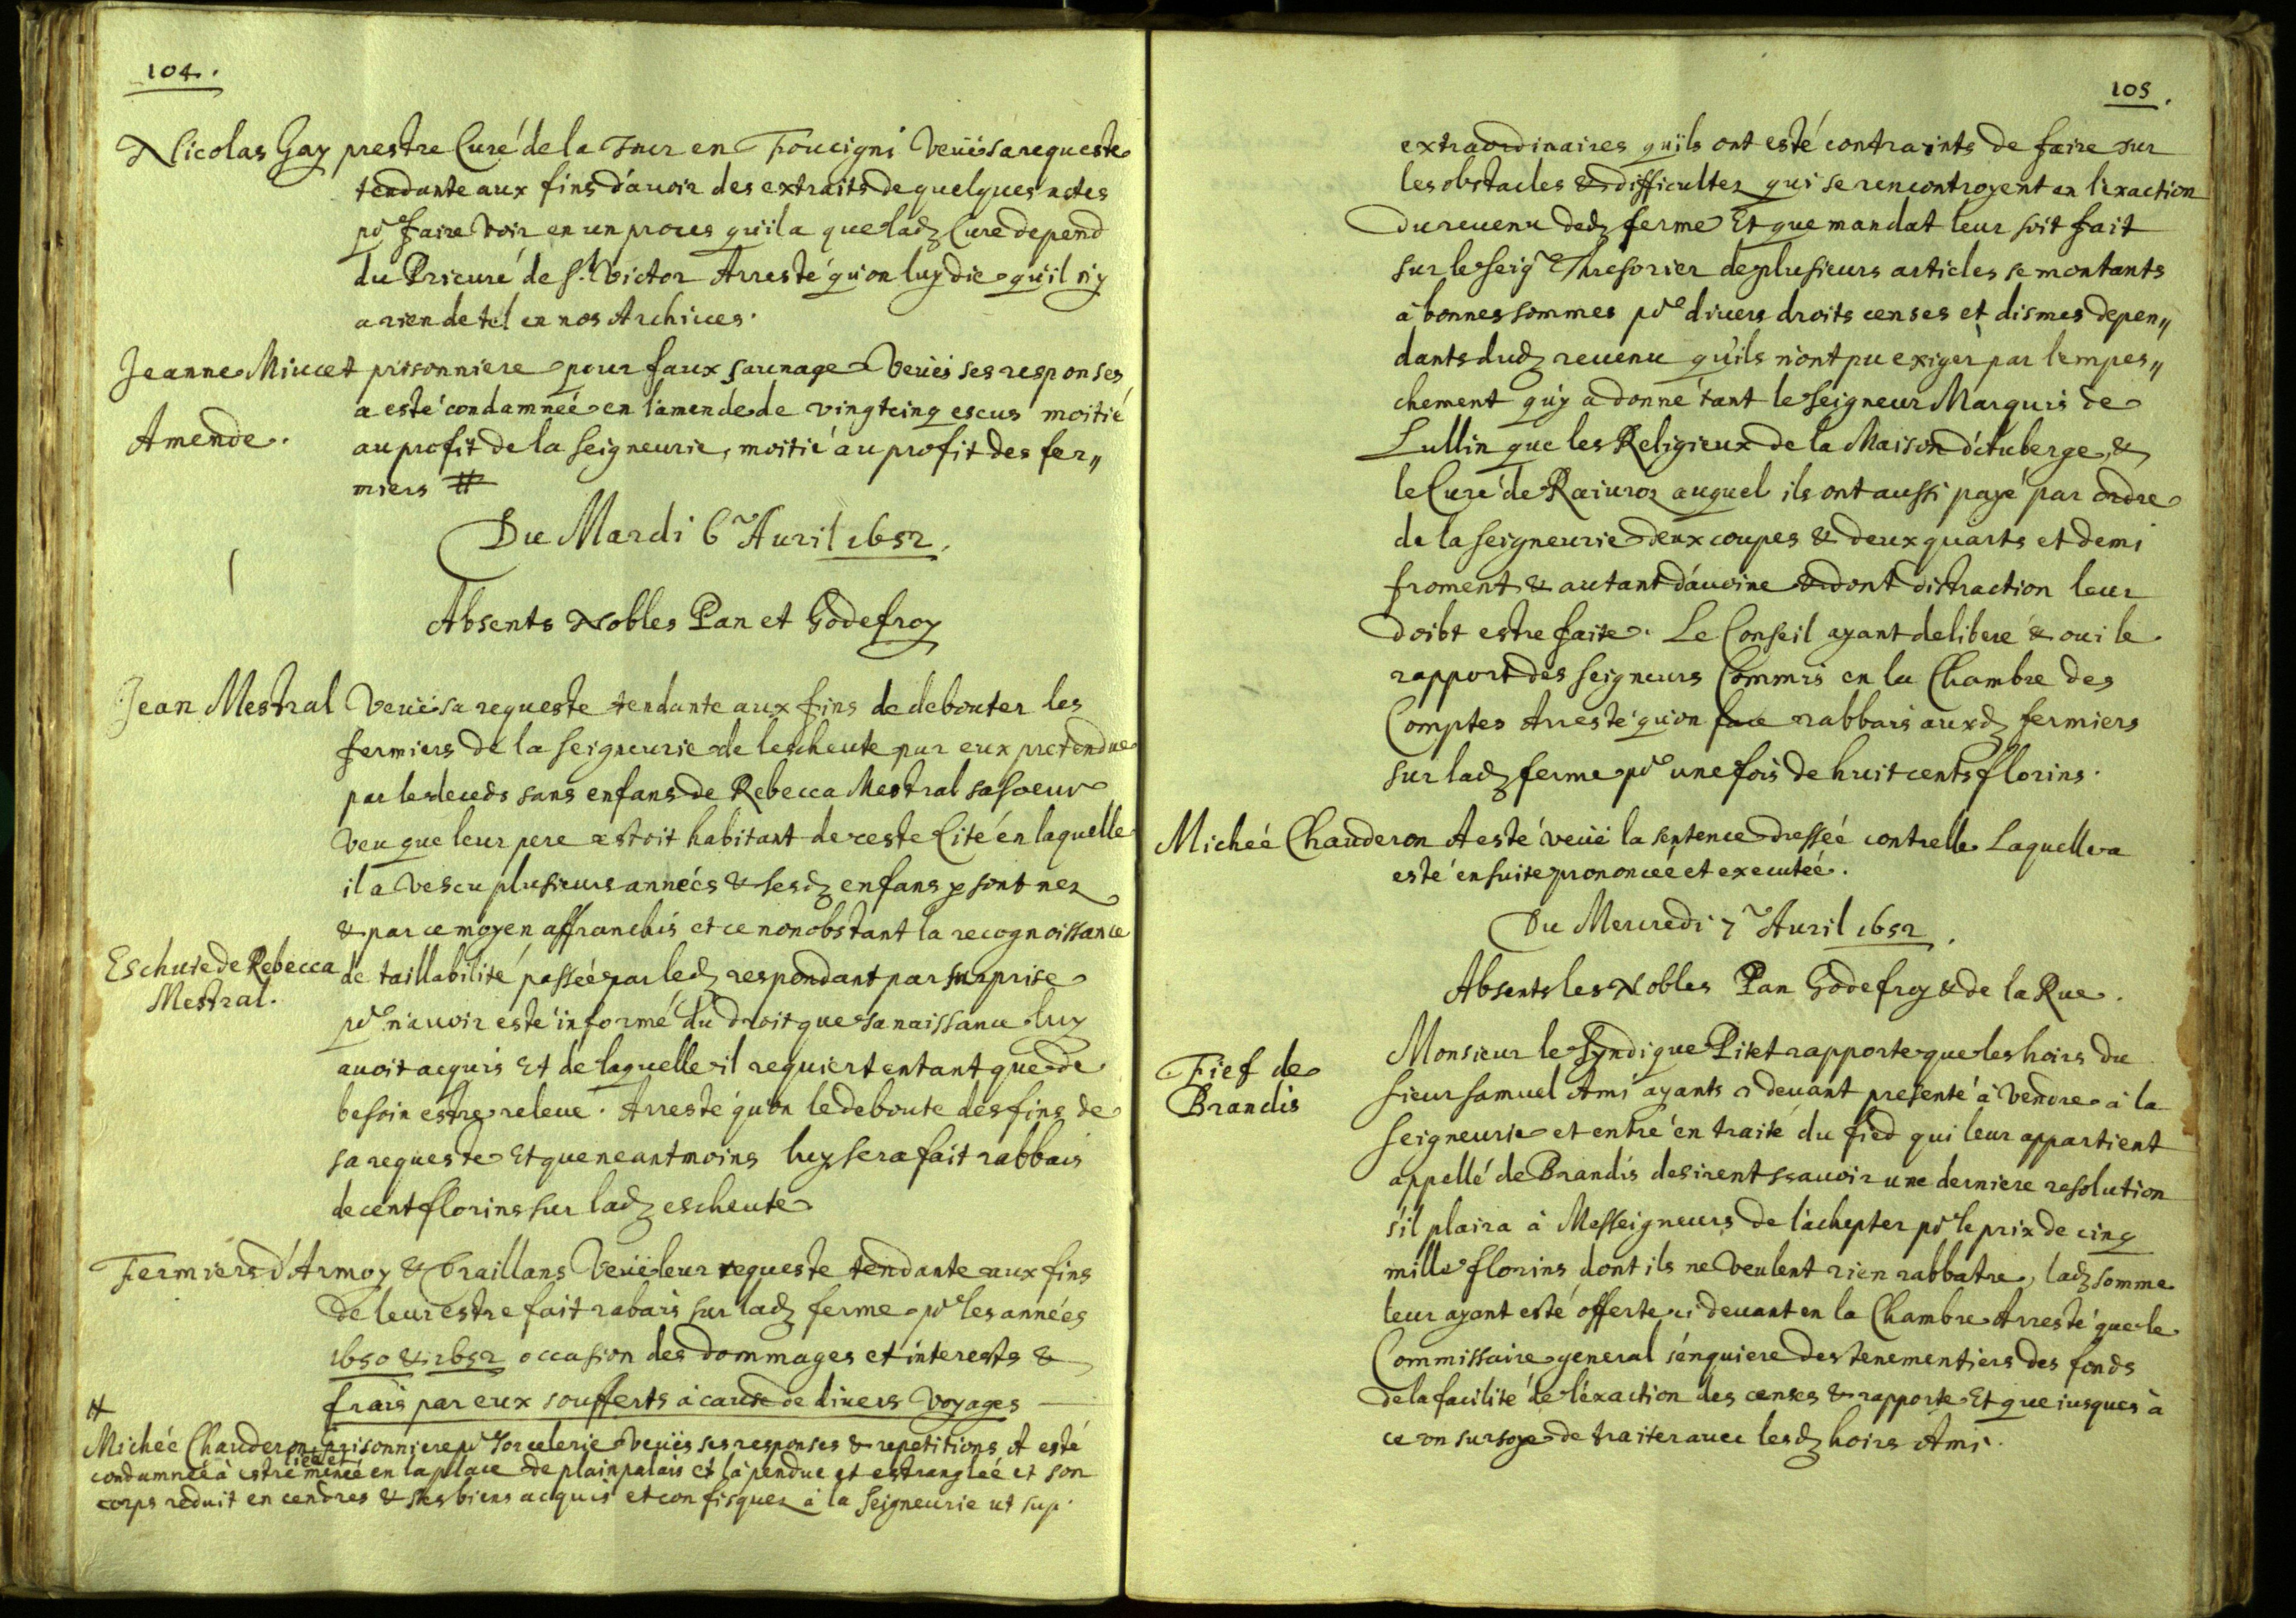 104.
Nicolas Gay prestre Curé de la Tour en Foucigni Veüe sa requeste
tendante aux fins d'avoir des extraits de quelques actes
pr faire voir en un proces qu'il a que lad. Cure depend
du Prieuré de St. Victor Arresté qu'on luy die qu'il n'y
a rien de tel en nos Archives.
Jeanne Miucet prisonniere pour faux saunage Veües ses responses
a esté condamneé en l'amende de vingtcinq escus moitié
Amende.
au profit de la Seigneurie, moitié au profit des fer„
miers #
Du Mardi 6 Avril 1652.
Absents Nobles Pan et Godefroy
Jean Mestral Veüe sa requeste tendante aux fins de debouter les
fermiers de la Seigneurie de lescheute par eux pretendue
par le deceds sans enfans de Rebecca Mestral sa soeur
veu que leur pere estoit habitant de ceste Cité en laquelle
il a vescu plusieurs années & sesd. enfans y sont nez
& par ce moyen affranchis et ce nonobstant la recognoissance
Escheute de Rebecca
Mestral.
de taillabilité passeé par led. respondant par surprise
pr n'avoir esté informé du droit que sa naissance luy
avoit acquis Et de laquelle il requiert entant que de
besoin estre releve. Arresté qu'on le deboute des fins de
sa requeste Et que neantmoins luy sera fait rabbais
de cent florins sur lad. escheute
Fermiers d'Armoy & Draillans Veüe leur requeste tendante aux fins
de leur estre fait rabais sur lad. ferme pr les années
1650 & 1652 occasion des dommages et interests &
frais par eux soufferts à cause de divers voyages
#
Micheé Chauderon prisonniere pr sorcelerie Veües ses responses & repetitions A esté
condamneé à estre lieé et meneé en la place de plainpalais et là pendue et estrangleé et son
corps reduit en cendres & ses biens acquis et confisquez à la Seigneurie ut sup.
105.
extraordinaires qu'ils ont esté contraints de faire sur
les obstacles & difficultez qui se rencontroyent en l'exaction
du revenu ded. ferme Et que mandat leur soit fait
sur le Seigr Thresorier de plusieurs articles se montants
à bonnes sommes pr divers droits censes et dismes depen„
dants dud. revenu qu'ils n'ont pu exiger par lempes„
chement qu'y a donné tant le Seigneur Marquis de
Lullin que les Religieux de la Maison d'Auberge, &
le Curé de auquel ils ont aussi payé par ordre
de la Seigneurie deux coupes & deux quarts et demi
froment & autant d'avoine & dont distraction leur
doibt estre faite. Le Conseil ayant deliberé & oui le
rapport des Seigneurs Commis en la Chambre des
Comptes Arresté qu'on face rabbais auxd. fermiers
sur lad. ferme pr une fois de huit cents florins.
Micheé Chauderon A esté veüe la sentence dresseé contr'elle Laquelle a
esté ensuite prononceé et executeé.
Du Mercredi 7 Avril 1652.
Absents les Nobles Pan Godefroy & de la Rue.
Fief de
Brandis
Monsieur le Syndique Pitet rapporte que les hoirs du
Sieur Samuel Ami ayants ci devant presenté à vendre à la
Seigneurie et entré en traité du fied qui leur appartient
appellé de Brandis desirent scavoir une derniere resolution
s'il plaira à Messeigneurs de l'achepter pr le prix de cinq
mille florins dont ils ne veulent rien rabbatre, lad. somme
leur ayant esté offerte ci devant en la Chambre Arresté que le
Commissaire general s'enquiere des tenementiers des fonds
de la facilité de l'exaction des censes & rapporte Et que iusques à
ce on sursoye de traiter avec lesd. hoirs Ami.